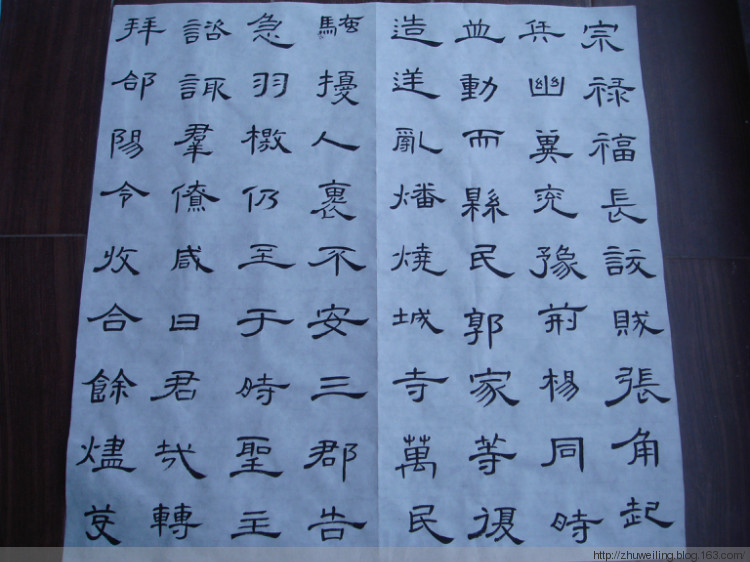 宗祿福長訞賊張角起
兵幽冀兗豫荊楊同時
並動而縣民郭家等復
造逆亂燔燒城寺萬民
騷擾人裹不安三郡告
急羽檄仍至于時聖主
諮諏羣僚咸曰君哉轉
拜郃陽令收合餘燼芟
http://zhuweiling.blog.163.com/